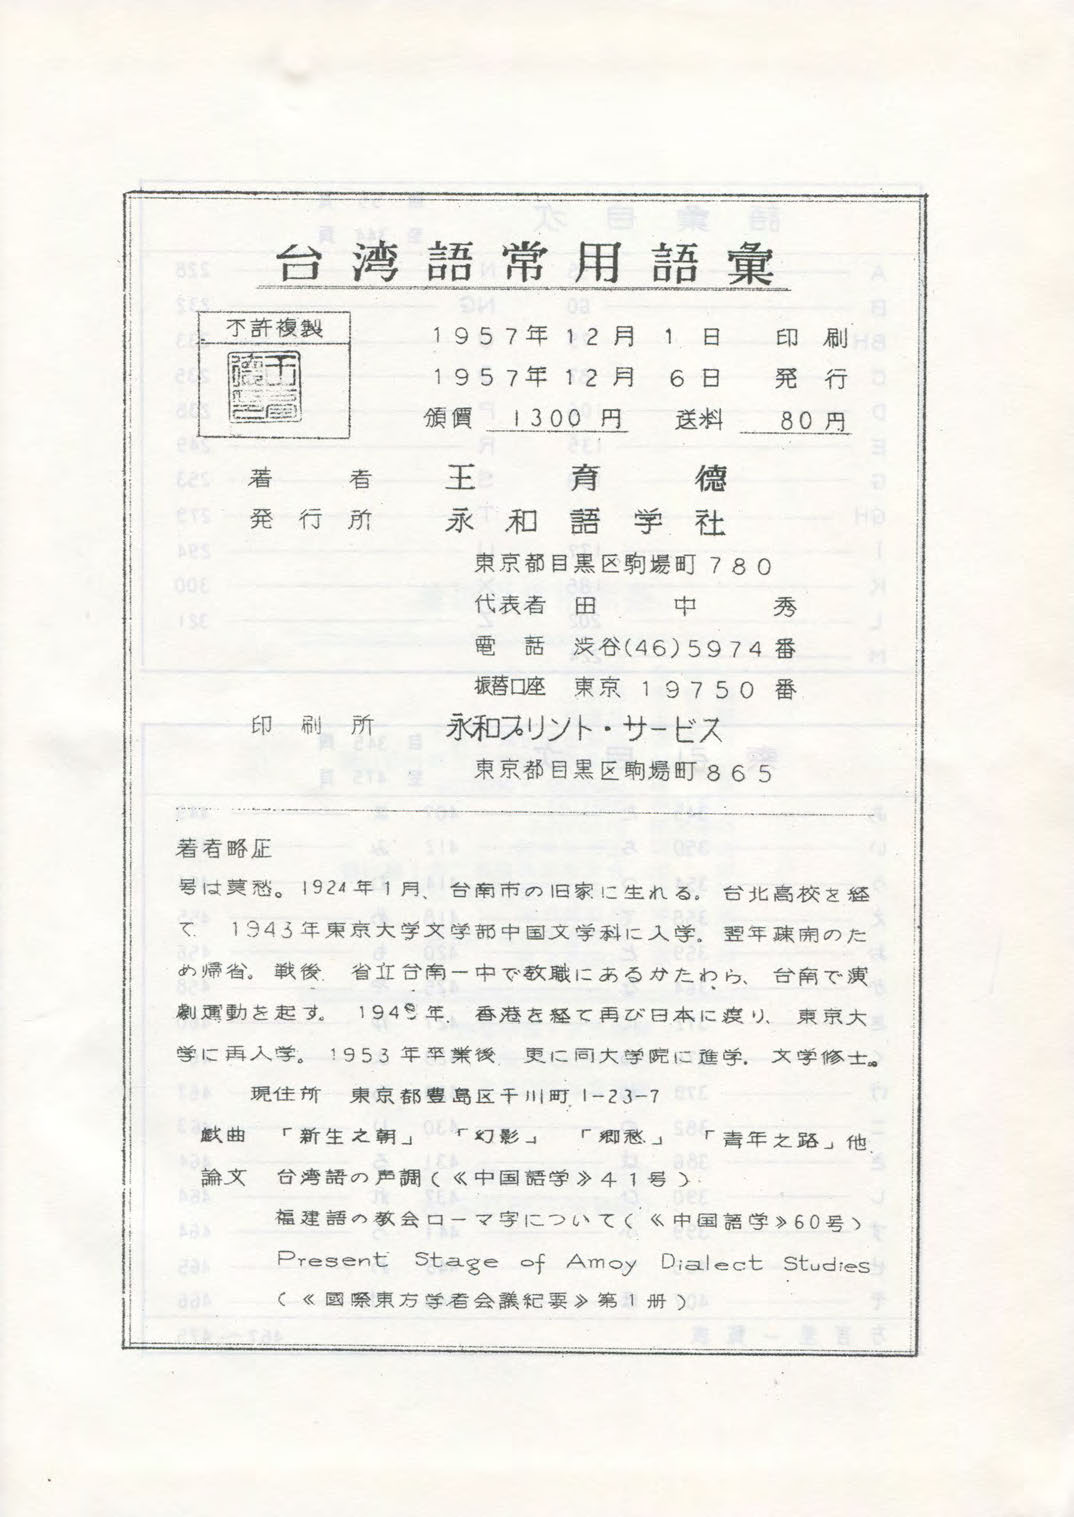 台湾語常用語彙
不許複製
1957年12月1日 印刷
1957年12月6日 発行
頒價 1300円 送料 80円
著者 王育德
発行所 永和語学社
東京都目黒区駒場町780
代表者 田中秀
電話 渋谷(46)5974番
振替口座 東京 19750番
印刷所 永和プリント・サービス
東京都目黒区駒場町865
著者略歴
号は莫愁。1924年1月、台南市の旧家に生れる。台北高校を経
て、1943年東京大学文学部中国文学科に入学。翌年疎開のた
め帰省。戦後、省立台南一中で教職にあるかたわら、台南で演
劇運動を起す。1949年、香港を経て再び日本に渡り、東京大
学に再入学。1953年卒業後、更に同大学院に進学。文学修士。
現住所 東京都豊島区千川町1-23-7
戯曲 「新生之朝」 「幻影」 「郷愁」 「青年之路」他
論文 台湾語の声調(《中国語学》41号)
福建語の教会ローマ字について(《中国語学》60号)
Present Stage of Amoy Dialect Studies
(《國際東方学者会議紀要》第1册)